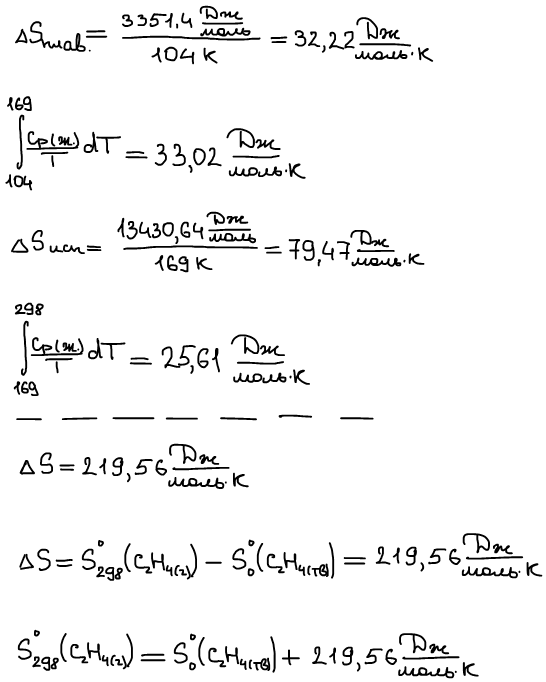 ΔSплав. = 3351,4 Дж/моль / 104 K = 32,22 Дж/моль·K
∫₁₀₄¹⁶⁹ Cp(ж.)/T dT = 33,02 Дж/моль·K
ΔSисп = 13430,64 Дж/моль / 169 K = 79,47 Дж/моль·K
∫₁₆₉²⁹⁸ Cp(ж.)/T dT = 25,61 Дж/моль·K
ΔS = 219,56 Дж/моль·K
ΔS = S°₂₉₈(C₂H₄(г)) − S°₀(C₂H₄(тв)) = 219,56 Дж/моль·K
S°₂₉₈(C₂H₄(г)) = S°₀(C₂H₄(тв)) + 219,56 Дж/моль·K